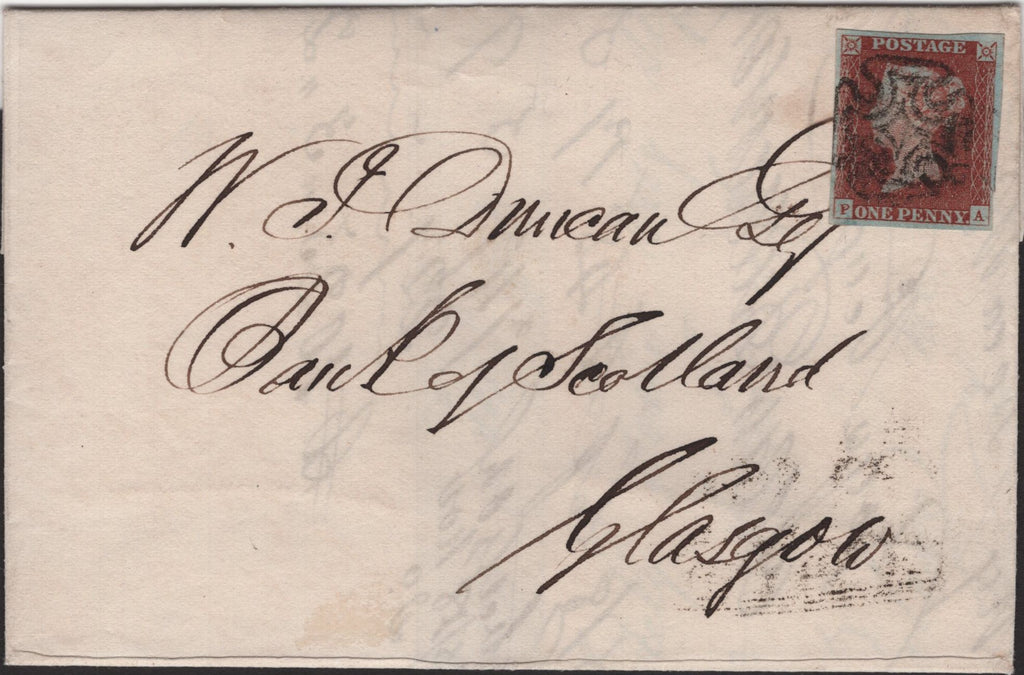 POSTAGE
P ONE PENNY A
W. J. Duncan Esq
Bank of Scotland
Glasgow